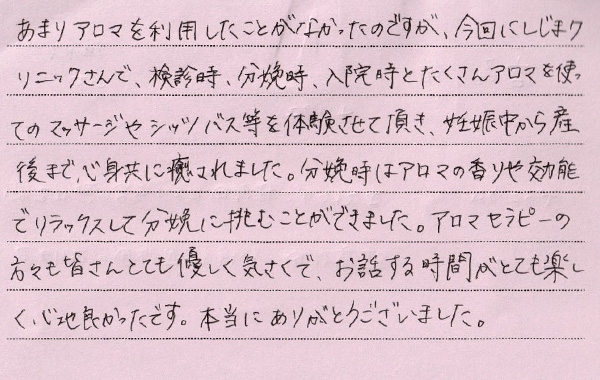 あまりアロマを利用したことがなかったのですが、今回にしじまク
リニックさんで、検診時、分娩時、入院時とたくさんアロマを使っ
てのマッサージやシッツバス等を体験させて頂き、妊娠中から産
後まで、心身共に癒されました。分娩時はアロマの香りや効能
でリラックスして分娩に挑むことができました。アロマセラピーの
方々も皆さんとても優しく気さくで、お話する時間がとても楽し
く、心地良かったです。本当にありがとうございました。